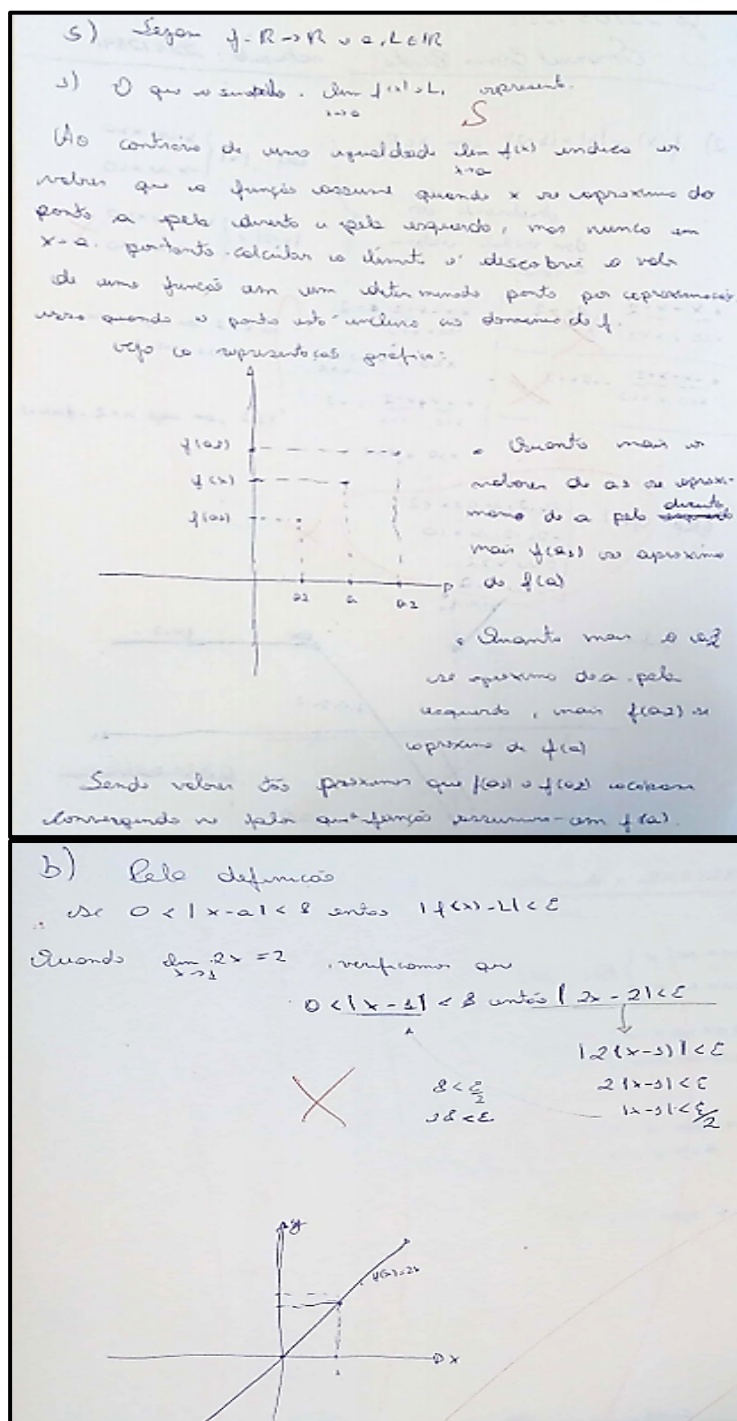 5) Sejam f: R → R e a, L ∈ R
1) O que o símbolo. lim x→a f(x) = L, represent.
S
Ao contrario de uma igualdade lim x→a f(x) indica os
valores que a função assume quando x se aproxima do
ponto a pela direita e pela esquerda, mas nunca em
x=a. portanto calcular o limite é descobrir o valor
de uma função em um determinado ponto por aproximação
isso quando o ponto está incluso ao domínio de f.
veja a representação gráfica:
f(a1)
f(x)
f(a2)
a2 a a1
• Quanto mais os
valores de a1 se aproxi-
mama de a pela direita
mais f(a1) se aproxima
de f(a)
• Quanto mais o a2
se aproxima de a pela
esquerda, mais f(a2) se
aproxima de f(a)
Sendo valores tão próximos que f(a1) e f(a2) acabam
convergindo no valor que função assumiu em f(a).
b) Pela definição
se 0 < |x-a| < δ entao |f(x)-L| < ε
Quando lim x→1 2x = 2, verificamos que
0 < |x-1| < δ então |2x-2| < ε
|2(x-1)| < ε
δ < ε/2 2|x-1| < ε
2δ < ε |x-1| < ε/2
y
f(x)=2x
x
1